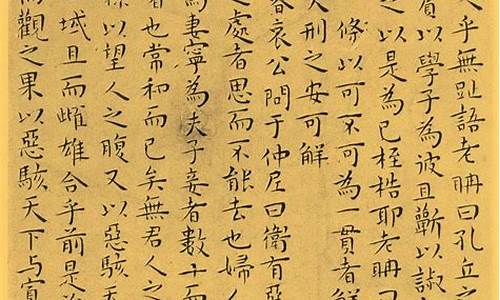 人乎無趾語老聃曰孔丘之
賓以學子為彼且蘄以諔
之以是為已桎梏耶老聃曰
條以可不可為一貫者解
天刑之安可解
魯哀公問于仲尼曰衛有惡
之處者思而不能去也婦人
為妻寧為夫子妾者數十而
者也常和而已矣無君人之
祿以望人之腹又以惡駭天
域且而雌雄合乎前是
而觀之果以惡駭天下與寡